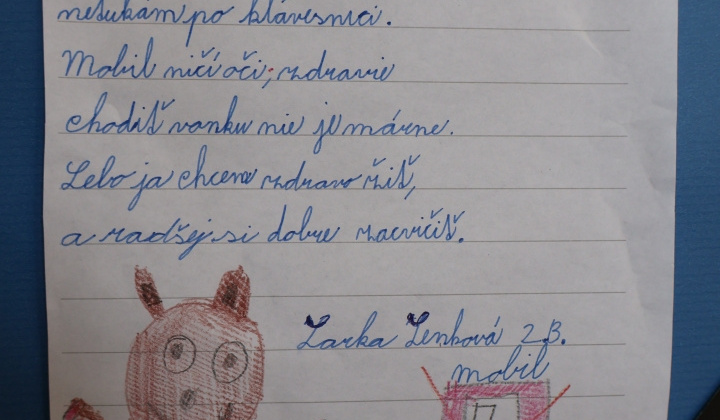 neťukám po klávesnici.
Mobil ničí oči, zdravie
chodiť vonku nie je márne.
Lebo ja chcem zdravo žiť,
a radšej si dobre zacvičiť.
Larka Lenková 2.B.
mobil